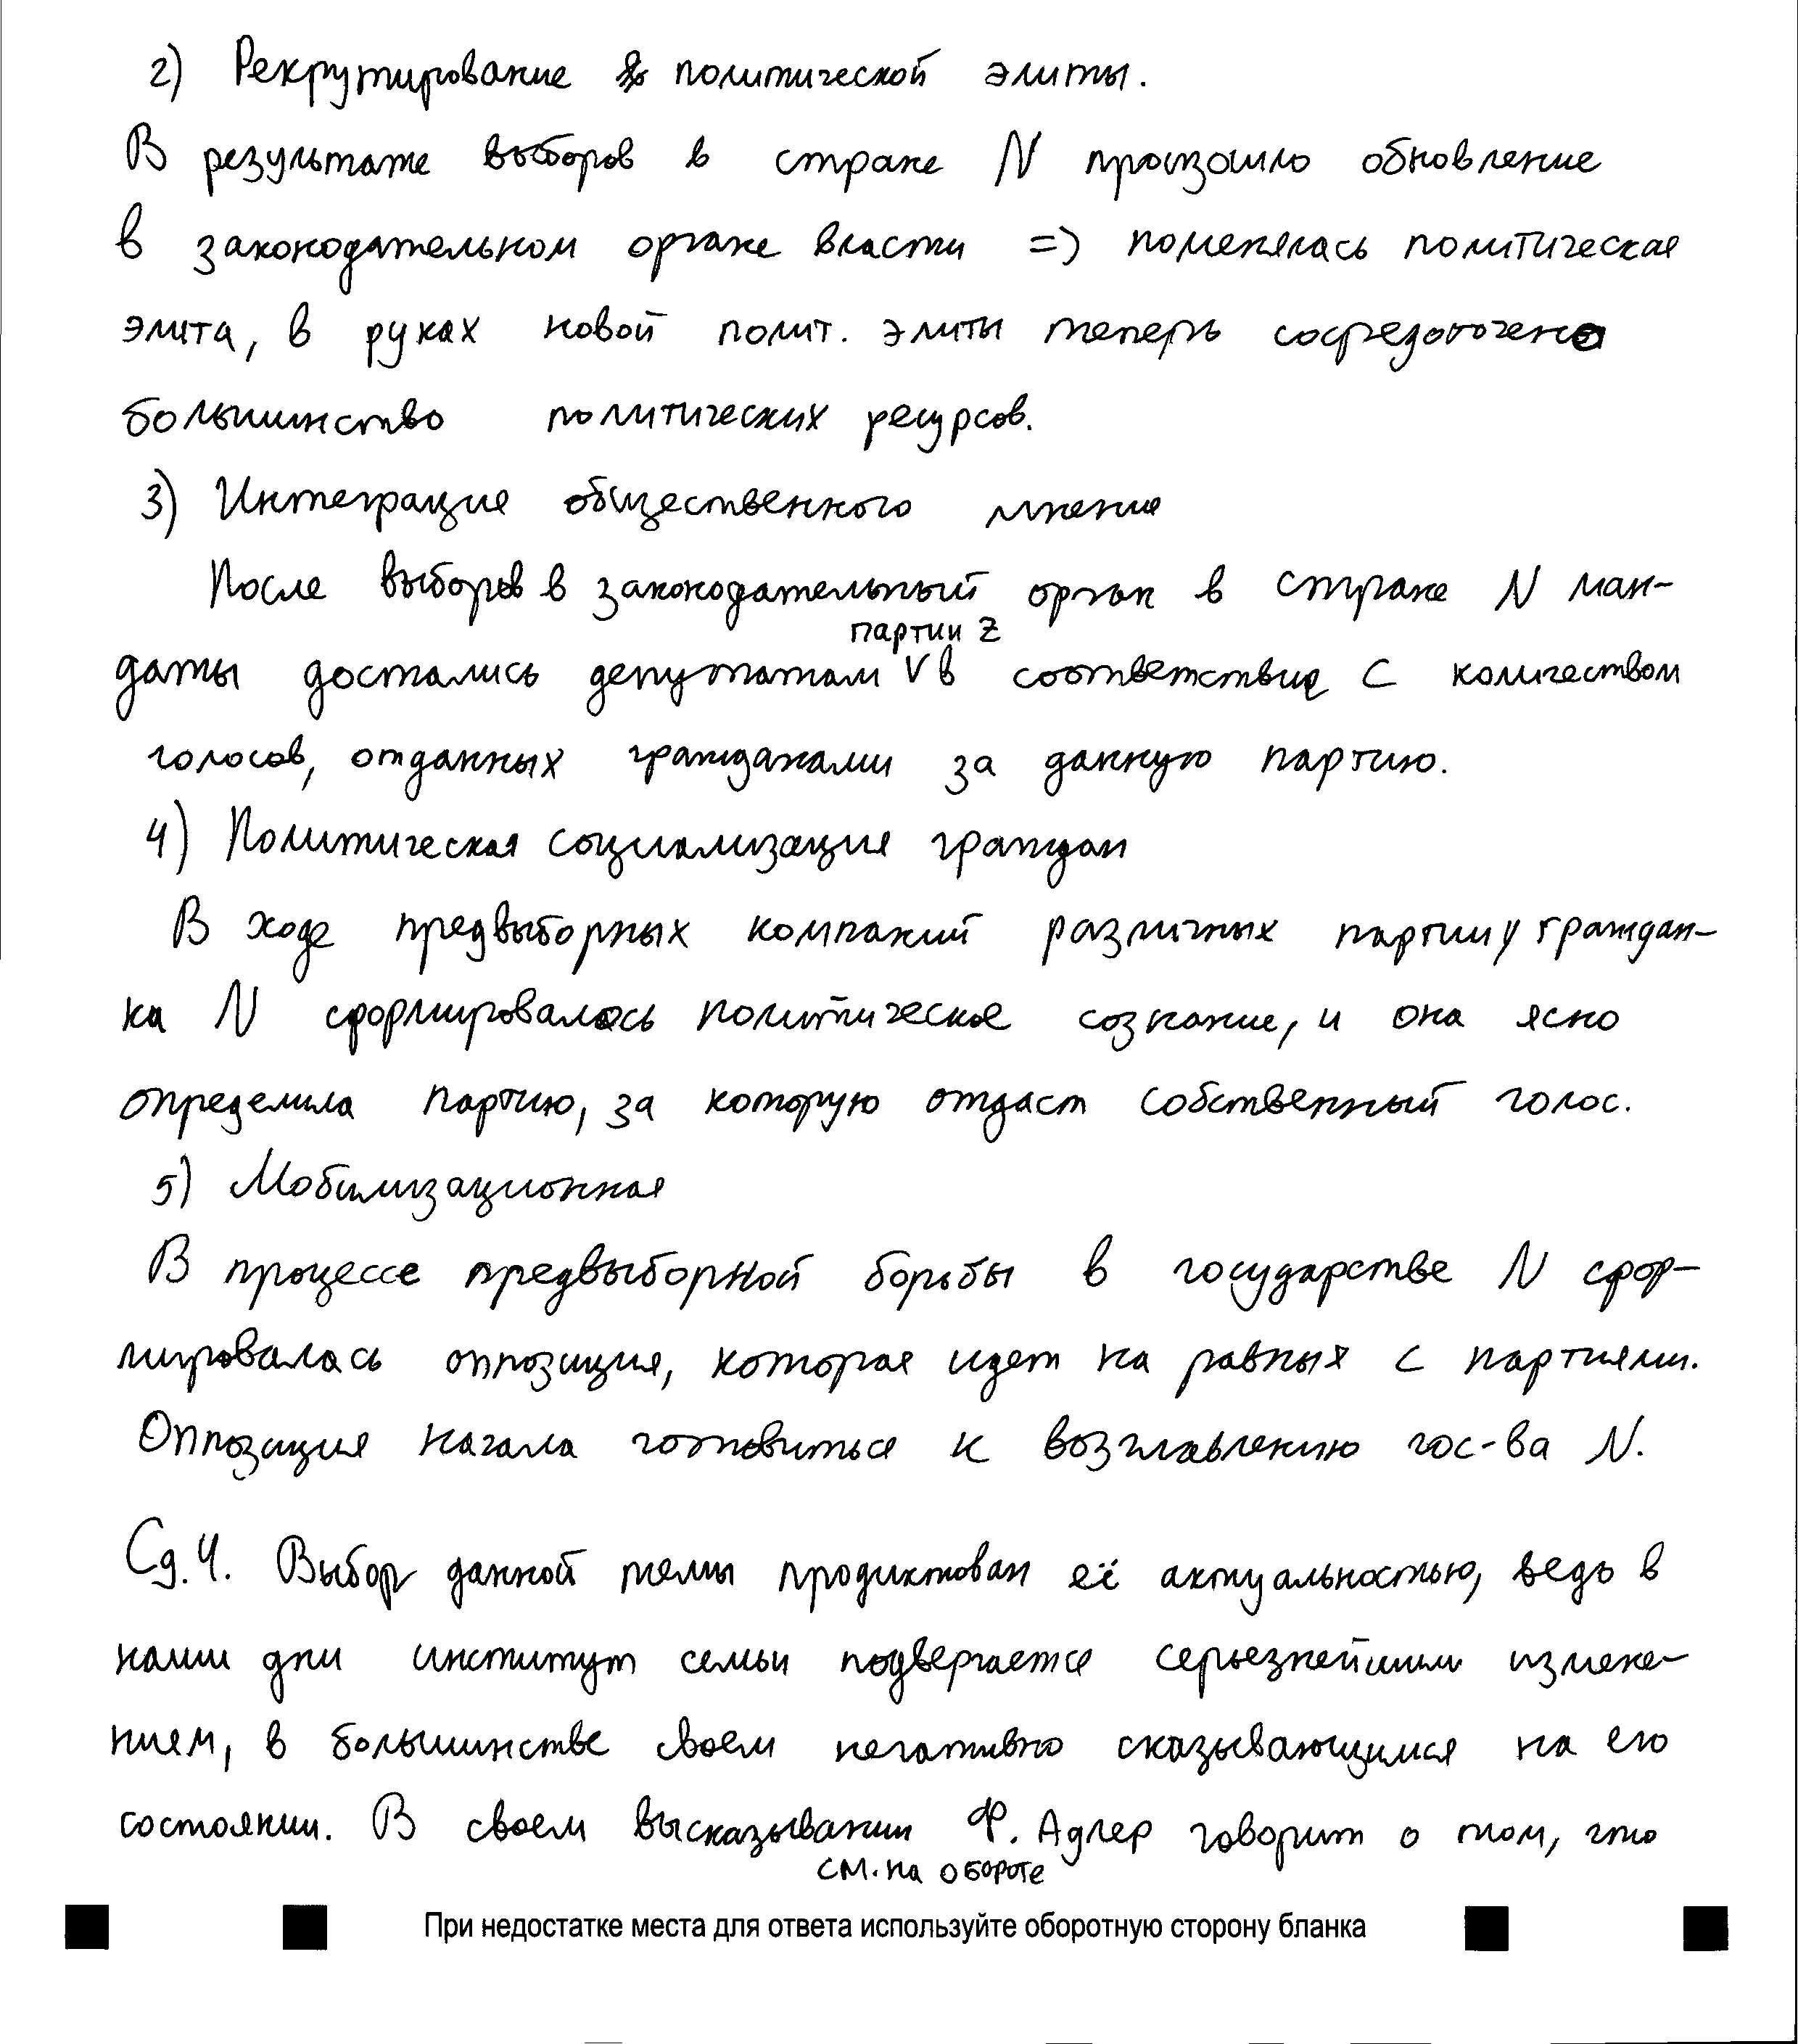 2) Рекрутирование политической элиты.
В результате выборов в стране N произошло обновление
в законодательном органе власти => поменялась политическая
элита, в руках новой полит. элиты теперь сосредоточено
большинство политических ресурсов.
3) Интеграция общественного мнения
После выборов в законодательный орган в стране N ман-
партии Z
даты достались депутатам V в соответствие с количеством
голосов, отданных гражданами за данную партию.
4) Политическая социализация граждан
В ходе предвыборных компаний различных партий у граждан-
ки N сформировалось политическое сознание, и она ясно
определила партию, за которую отдаст собственный голос.
5) Мобилизационная
В процессе предвыборной борьбы в государстве N сфор-
мировалась оппозиция, которая идет на равных с партиями.
Оппозиция начала готовиться к возглавлению гос-ва N.
Сд.4. Выбор данной темы продиктован её актуальностью, ведь в
наши дни институт семьи подвергается серьезнейшим измене-
нием, в большинстве своем негативно сказывающимся на его
состоянии. В своем высказывании Ф. Адлер говорит о том, что
см. на обороте
При недостатке места для ответа используйте оборотную сторону бланка